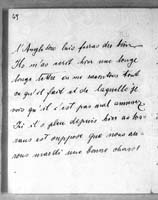 49
l'Angleterre lui feras des bien
Ils m'as écrit hier une longue
longue lettre en me racontant tout
ce qu'il fait et de laquelle je
vois qu'il s'est pas mal amusé
Ici il a plu depuis hier
sans et suppose que nous au-
rons mardi une bonne chasse